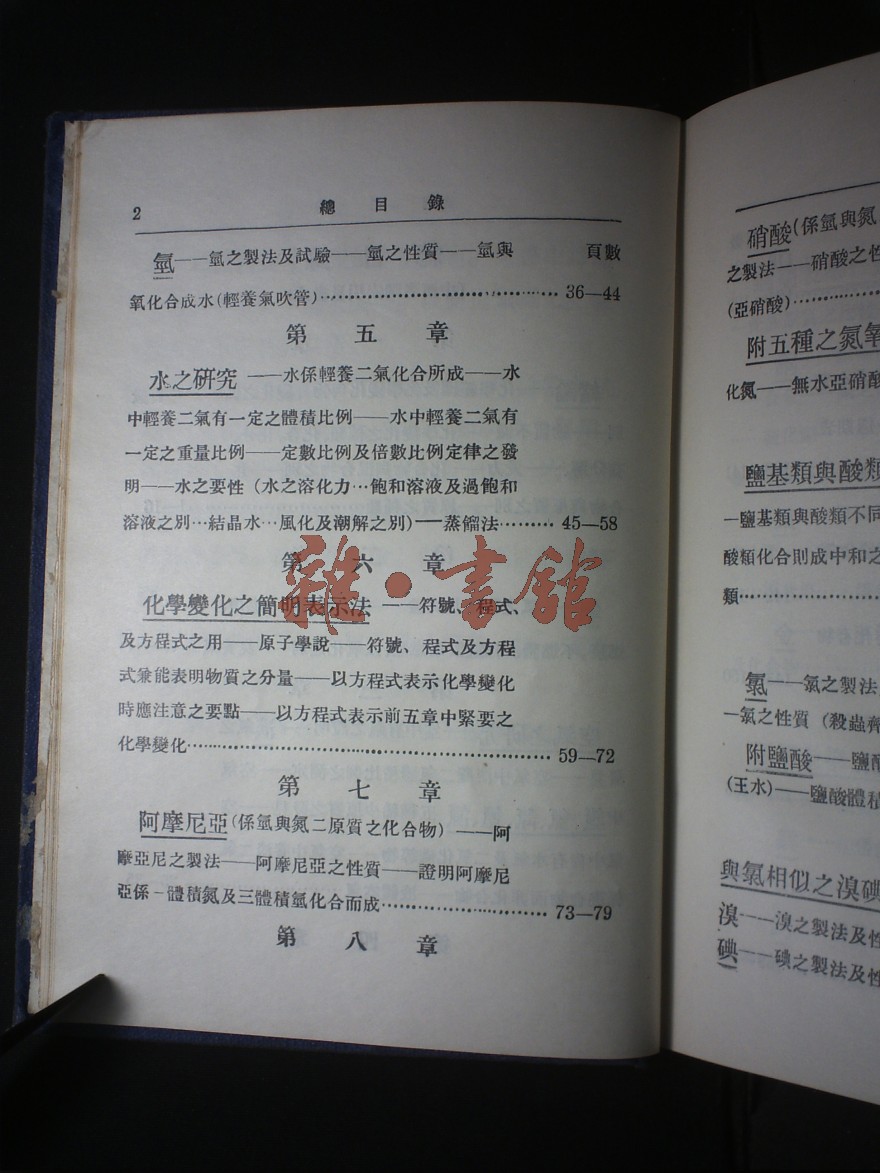 2 總目錄
氫——氫之製法及試驗——氫之性質——氫與 頁數
氧化合成水(輕養氣吹管)……………………36—44
第五章
水之研究——水係輕養二氣化合所成——水
中輕養二氣有一定之體積比例——水中輕養二氣有
一定之重量比例——定數比例及倍數比例定律之發
明——水之要性(水之溶化力…飽和溶液及過飽和
溶液之別…結晶水…風化及潮解之別)——蒸餾法………45—58
第六章
化學變化之簡明表示法——符號、程式、
及方程式之用——原子學說——符號、程式及方程
式兼能表明物質之分量——以方程式表示化學變化
時應注意之要點——以方程式表示前五章中緊要之
化學變化……………………59—72
第七章
阿摩尼亞(係氫與氮二原質之化合物)——阿
摩亞尼之製法——阿摩尼亞之性質——證明阿摩尼
亞係一體積氮及三體積氫化合而成……………………73—79
第八章
雜·書館
硝酸(係氫與氮
之製法——硝酸之性
(亞硝酸)…………
附五種之氮氧
化氮——無水亞硝酸
鹽基類與酸類
—鹽基類與酸類不同
酸類化合則成中和之
類…………
氯——氯之製法
—氯之性質(殺蟲劑
附鹽酸——鹽酸
(王水)——鹽酸體積
與氯相似之溴碘
溴——溴之製法及性
碘——碘之製法及性